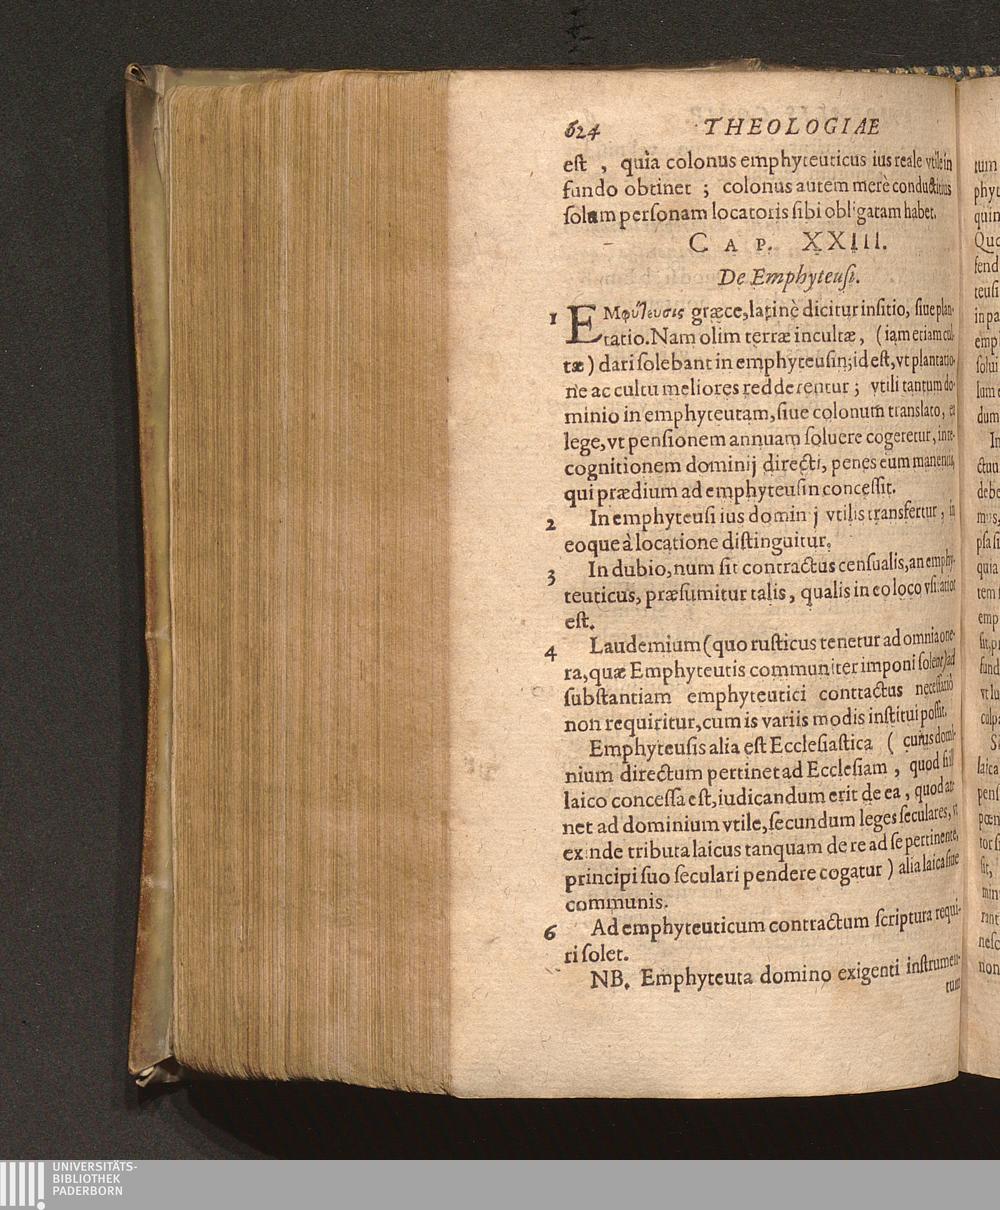 624 THEOLOGIAE
est , quia colonus emphyteuticus ius reale vtile in
fundo obtinet ; colonus autem merè conductitius
solum personam locatoris sibi obligatam habet.
CAP. XXIII.
De Emphyteusi.
1 EMφύτευσις græce, latinè dicitur insitio, siue plan-
tatio. Nam olim terræ incultæ, (iam etiam cul-
tæ) dari solebant in emphyteusin; id est, vt plantatio-
ne ac cultu meliores redderentur ; vtili tantum do-
minio in emphyteutam, siue colonum translato, ea
lege, vt pensionem annuam soluere cogeretur, in re-
cognitionem dominij directi, penes eum manentis,
qui prædium ad emphyteusin concessit.
2 In emphyteusi ius dominij vtilis transfertur, in
eoque à locatione distinguitur.
3 In dubio, num sit contractus censualis, an emphy-
teuticus, præsumitur talis, qualis in eo loco vsitatior
est.
4 Laudemium (quo rusticus tenetur ad omnia one-
ra, quæ Emphyteutis communiter imponi solent) ad
substantiam emphyteutici contractus necessariò
non requiritur, cum is variis modis institui possit.
Emphyteusis alia est Ecclesiastica ( cuius domi-
nium directum pertinet ad Ecclesiam , quod si
laico concessa est, iudicandum erit de ea , quod atti-
net ad dominium vtile, secundum leges seculares, vt
exinde tributa laicus tanquam de re ad se pertinente,
principi suo seculari pendere cogatur ) alia laica siue
communis.
6 Ad emphyteuticum contractum scriptura requi-
ri solet.
NB. Emphyteuta domino exigenti instrumen-
tum
tum
phyt
quin
Quo
fend
teusi
in pa
emp
solui
lum
dum
In
ctuu
debe
mus,
psa si
quia
tem
emp
sit, p
fund
vt lu
culpa
Si
laica
pens
pœn
tor si
sit,
min
rant
nesc
non
UNIVERSITÄTS-
BIBLIOTHEK
PADERBORN